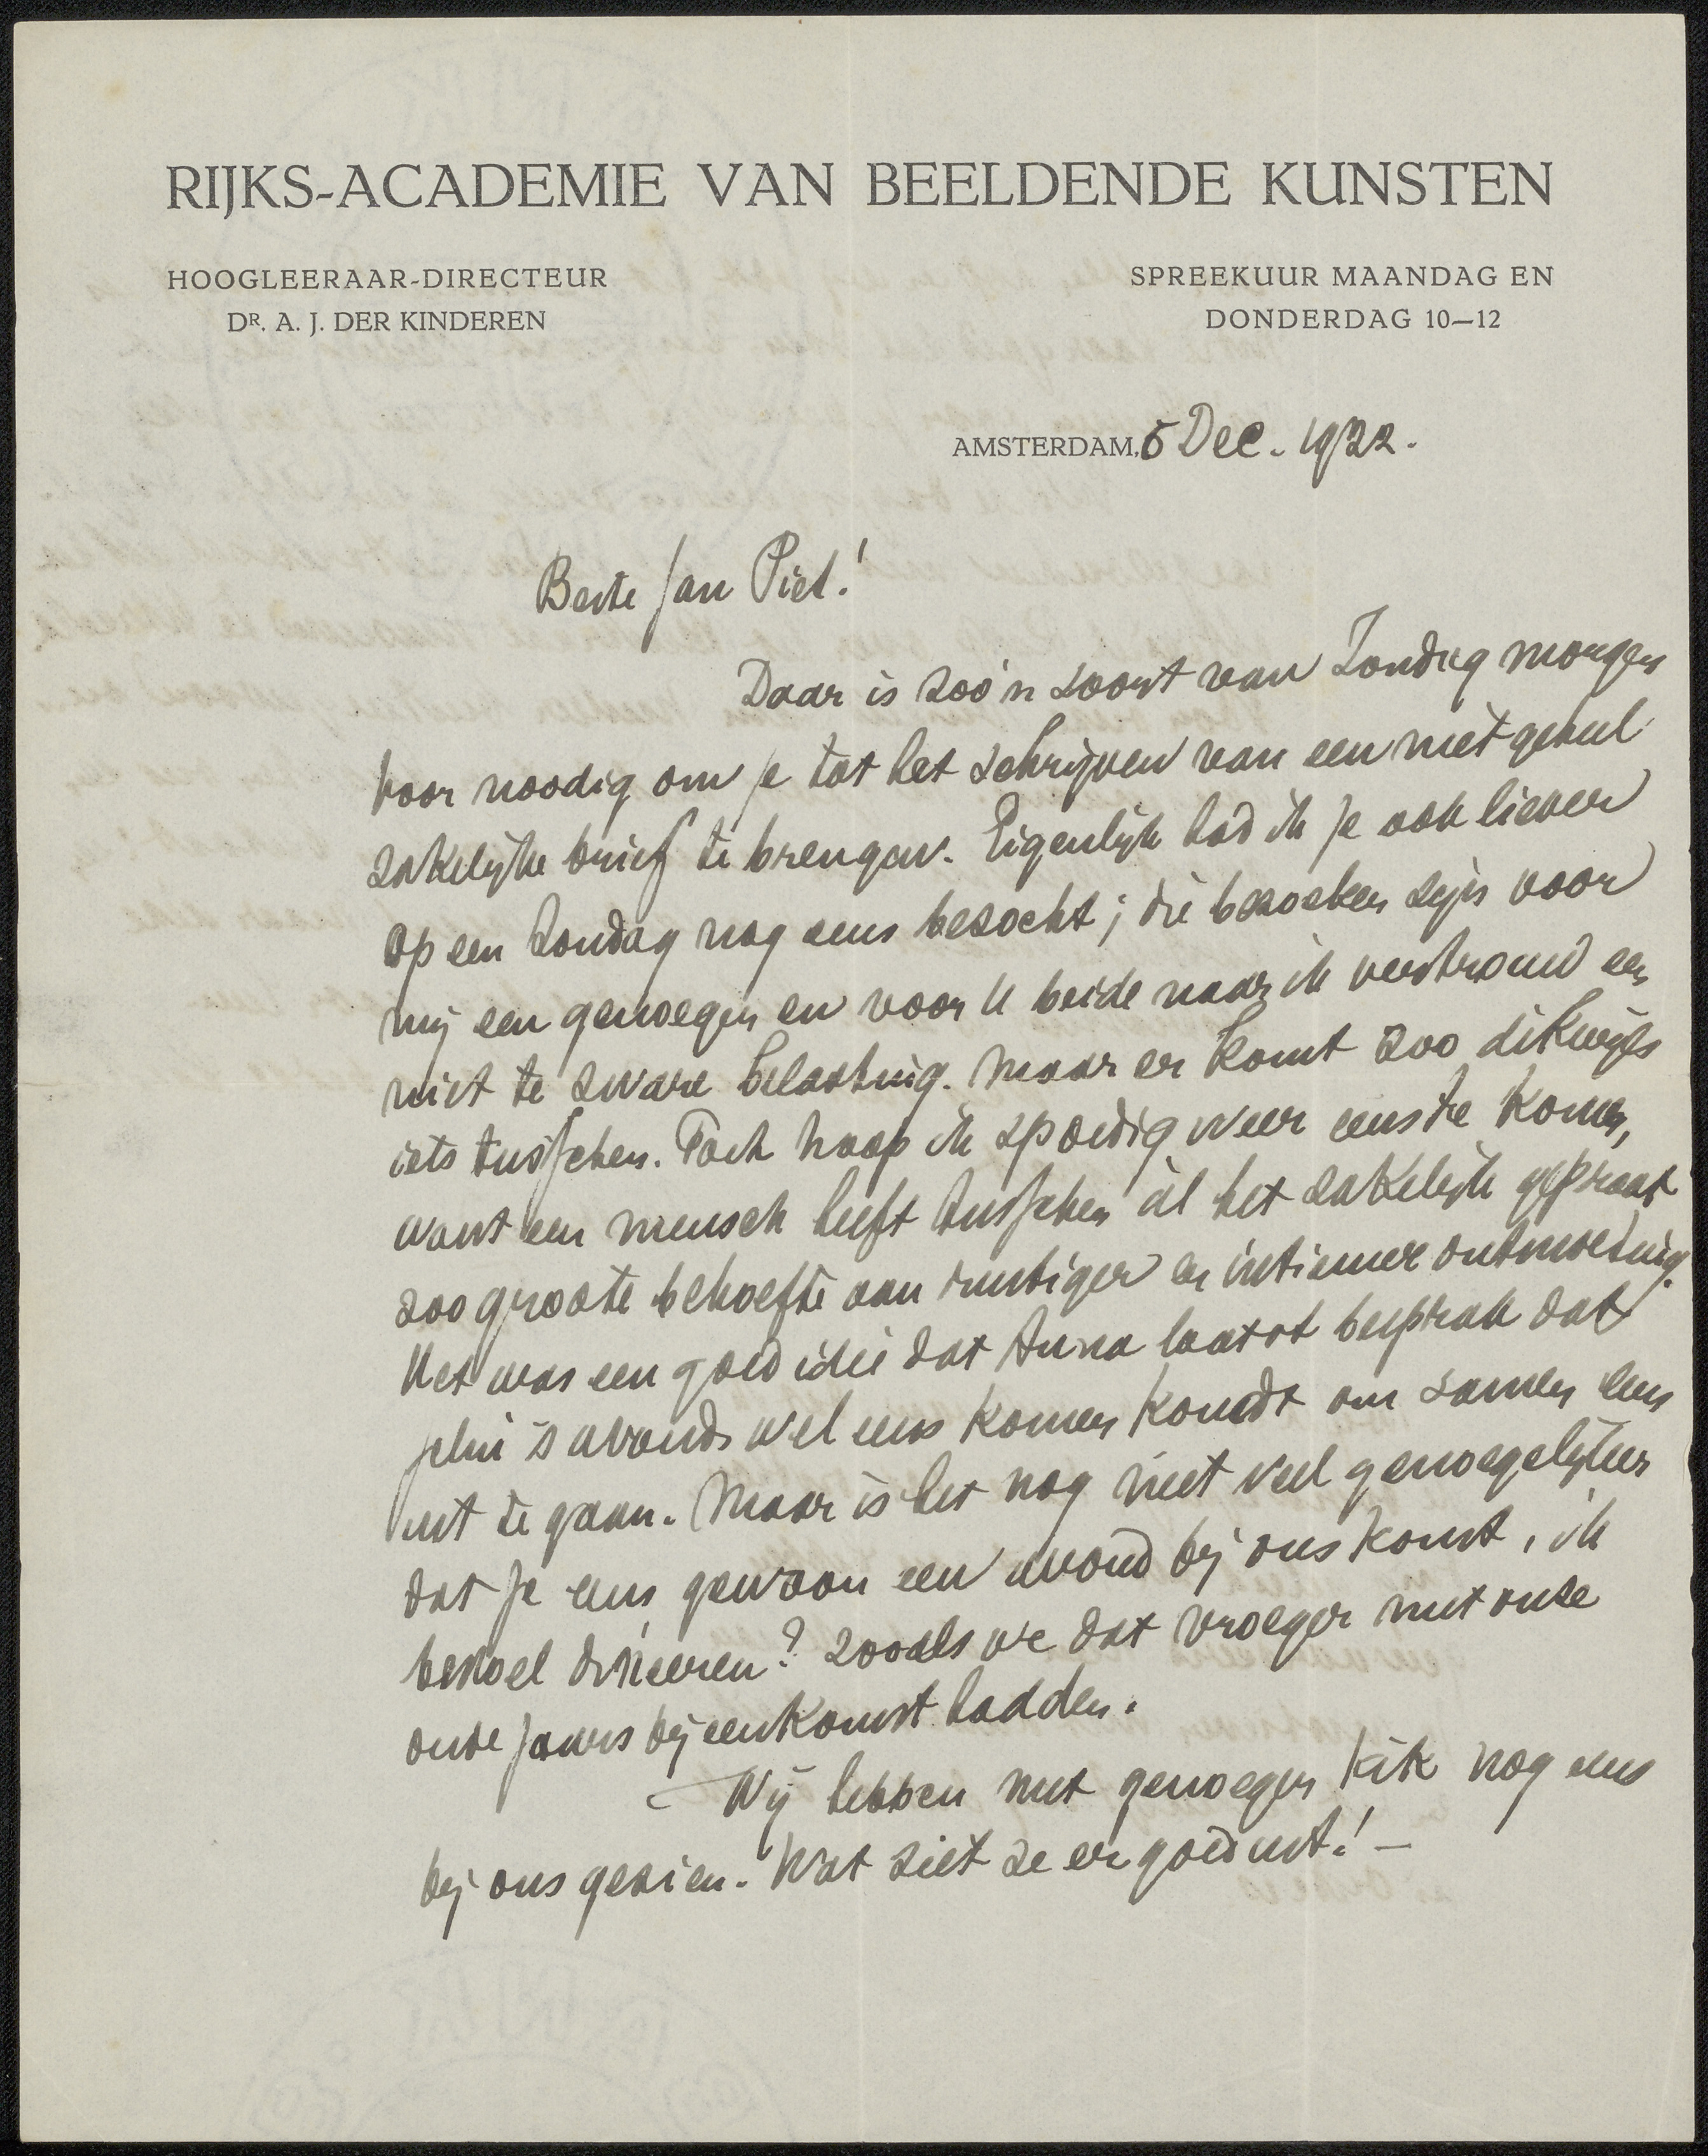 RIJKS-ACADEMIE VAN BEELDENDE KUNSTEN
HOOGLEERAAR-DIRECTEUR
DR. A. J. DER KINDEREN
SPREEKUUR MAANDAG EN
DONDERDAG 10–12
AMSTERDAM, 5 Dec. 1922.
Beste Jan Piet!
Daar is zoo'n soort van Zondag morgen
voor noodig om je tot het schrijven van een niet geheel
zakelijke brief te brengen. Eigenlijk had ik je ook liever
op een Zondag nog eens bezocht; die bezoeken zijn voor
mij een genoegen en voor U beide naar ik vertrouw een
niet te zware belasting. Maar er komt zoo dikwijls
iets tusschen. Toch hoop ik spoedig weer eens te komen,
want een mensch heeft tusschen al het zakelijk gepraat
zoo groote behoefte aan rustiger en intiemer ontmoeting.
Het was een goed idee dat Anna laatst besprak dat
jelui 's avonds wel eens komen kondt om samen eens
uit te gaan. Maar is het nog niet veel genoegelijker
dat je eens gewoon een avond bij ons komt, ik
bedoel dineeren? zooals we dat vroeger met onze
oude jaars bijeenkomst hadden.
– Wij hebben met genoegen Kik nog eens
bij ons gezien. Wat ziet ze er goed uit! –